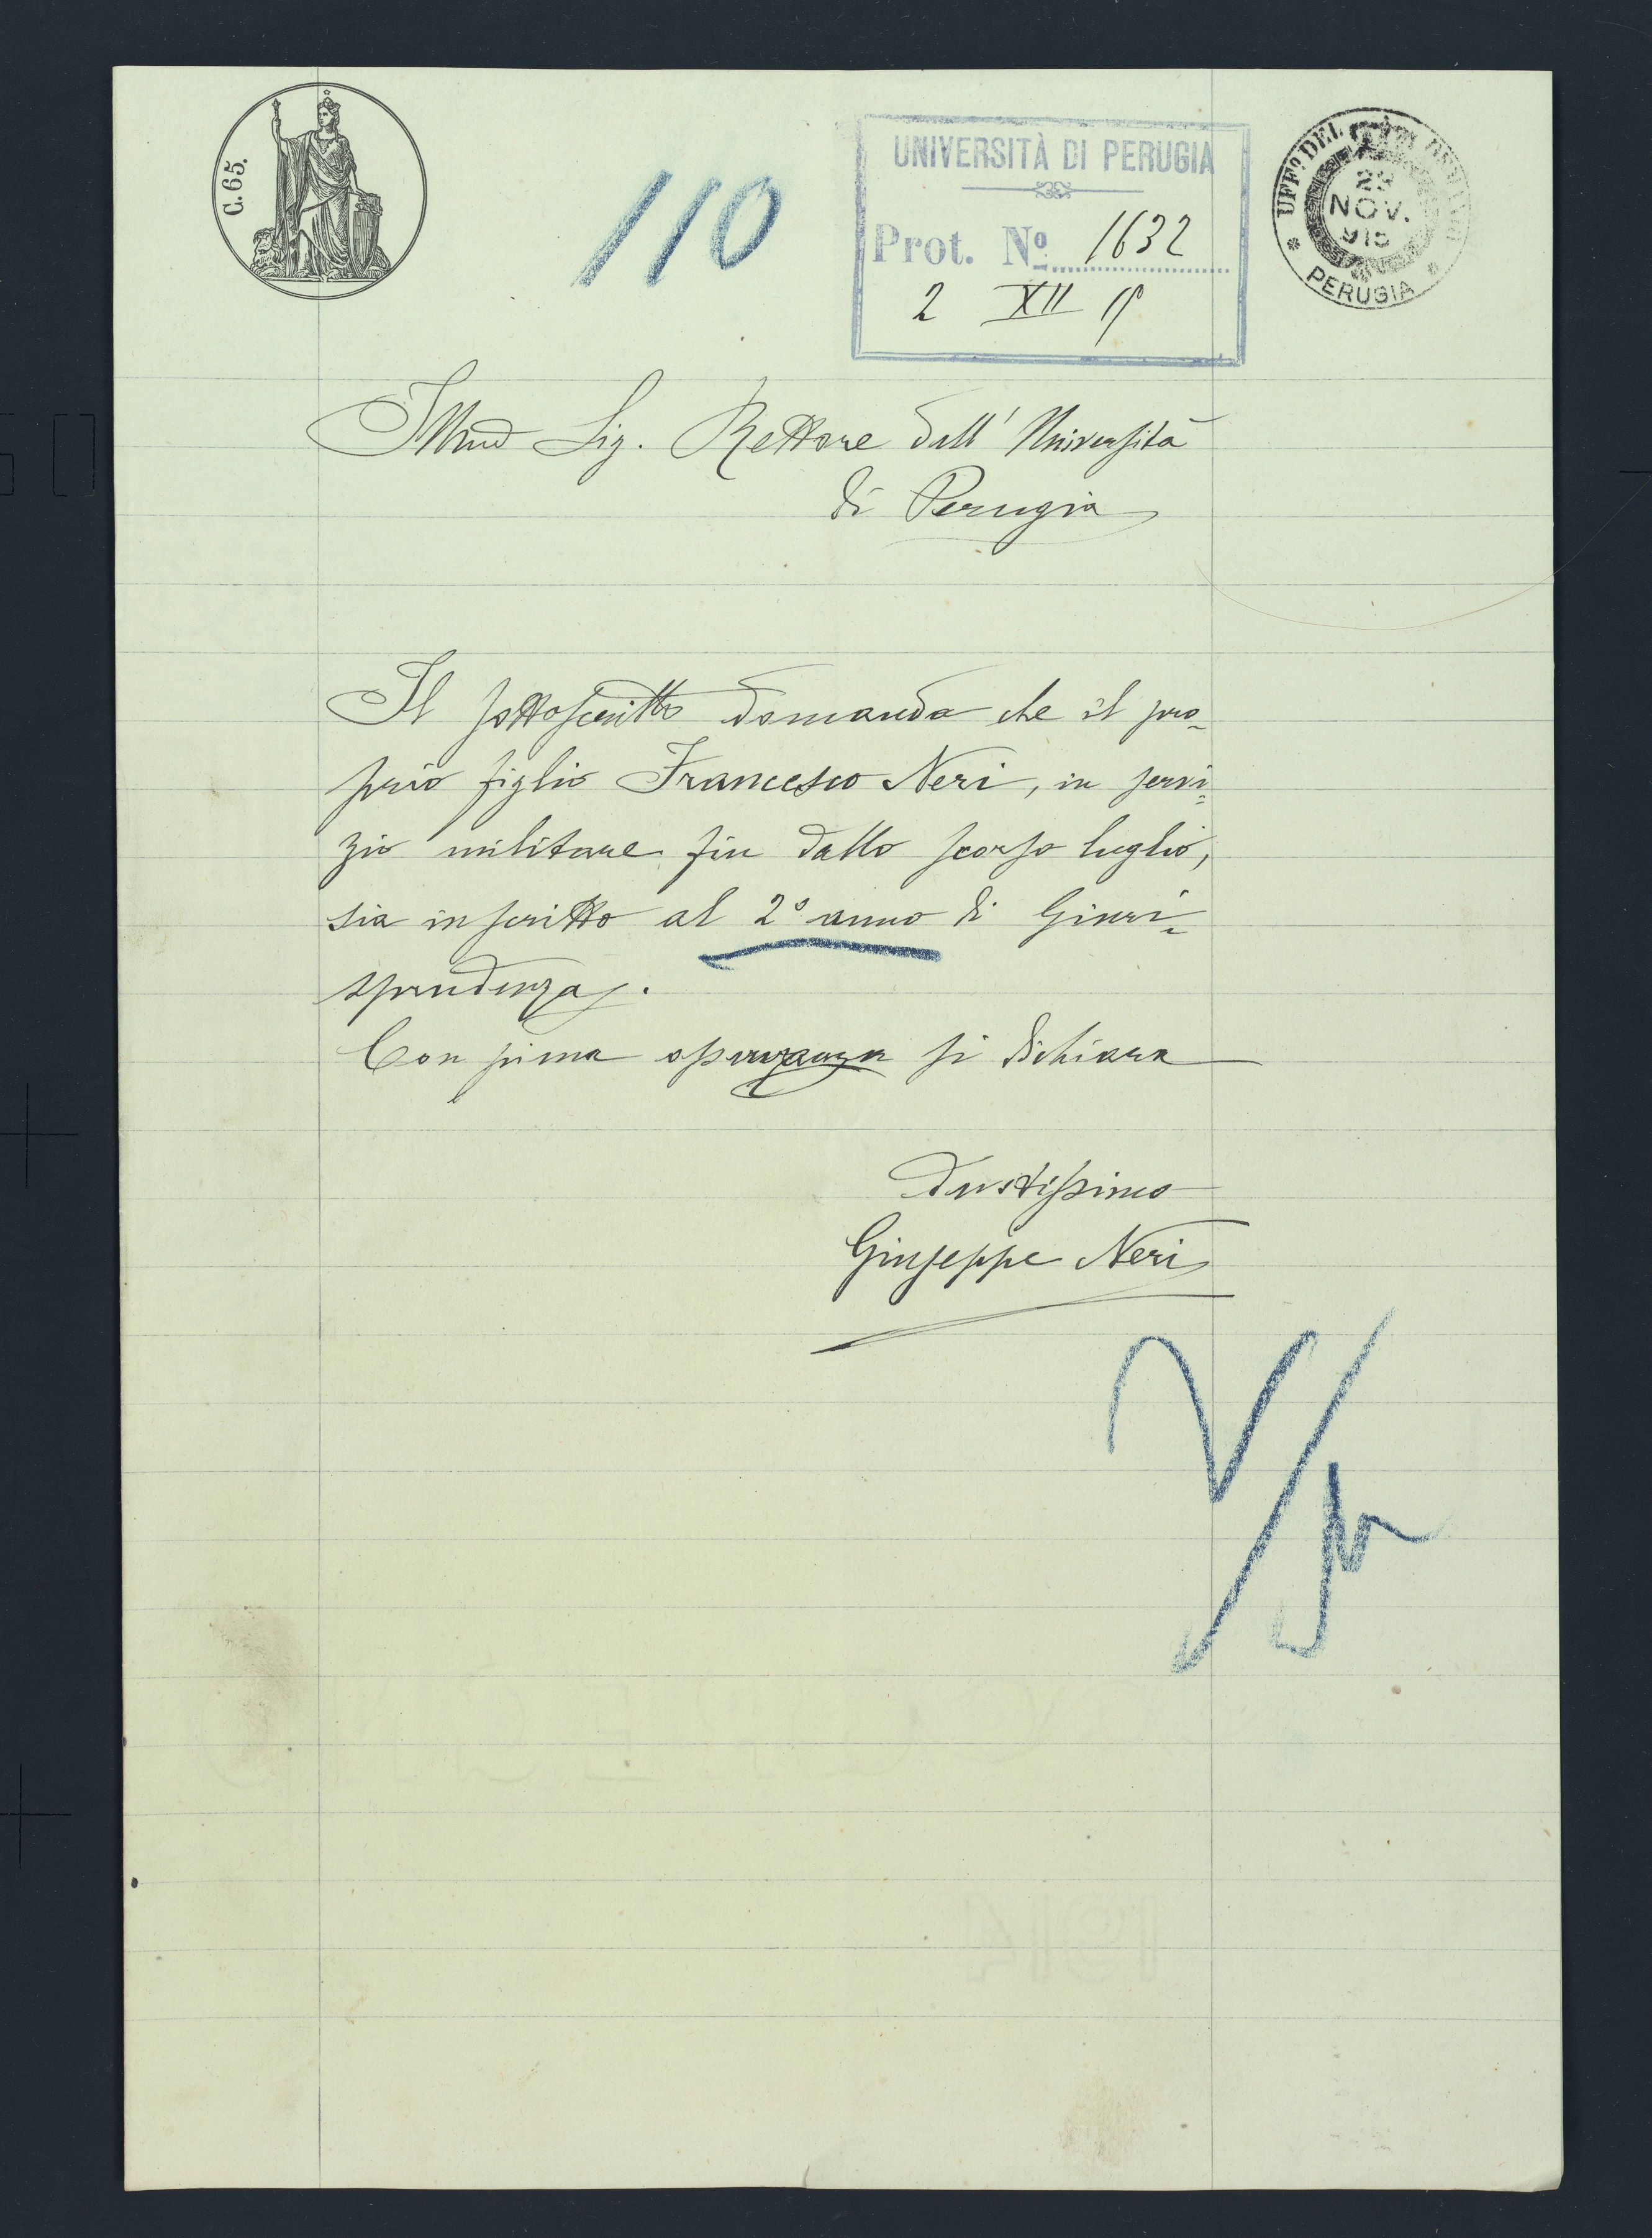 C. 65.
110
UNIVERSITÀ DI PERUGIA
Prot. Nº 1632
2 XII 15
UFFº DEL
29
NOV.
915
PERUGIA
Illmo Sig. Rettore dell' Università
di Perugia
Il sottoscritto domanda che il pro-
prio figlio Francesco Neri, in servi-
zio militare fin dallo scorso luglio,
sia inscritto al 2º anno di Giuri-
sprudenza.
Con piena osservanza si dichiara
Devotissimo
Giuseppe Neri
1914